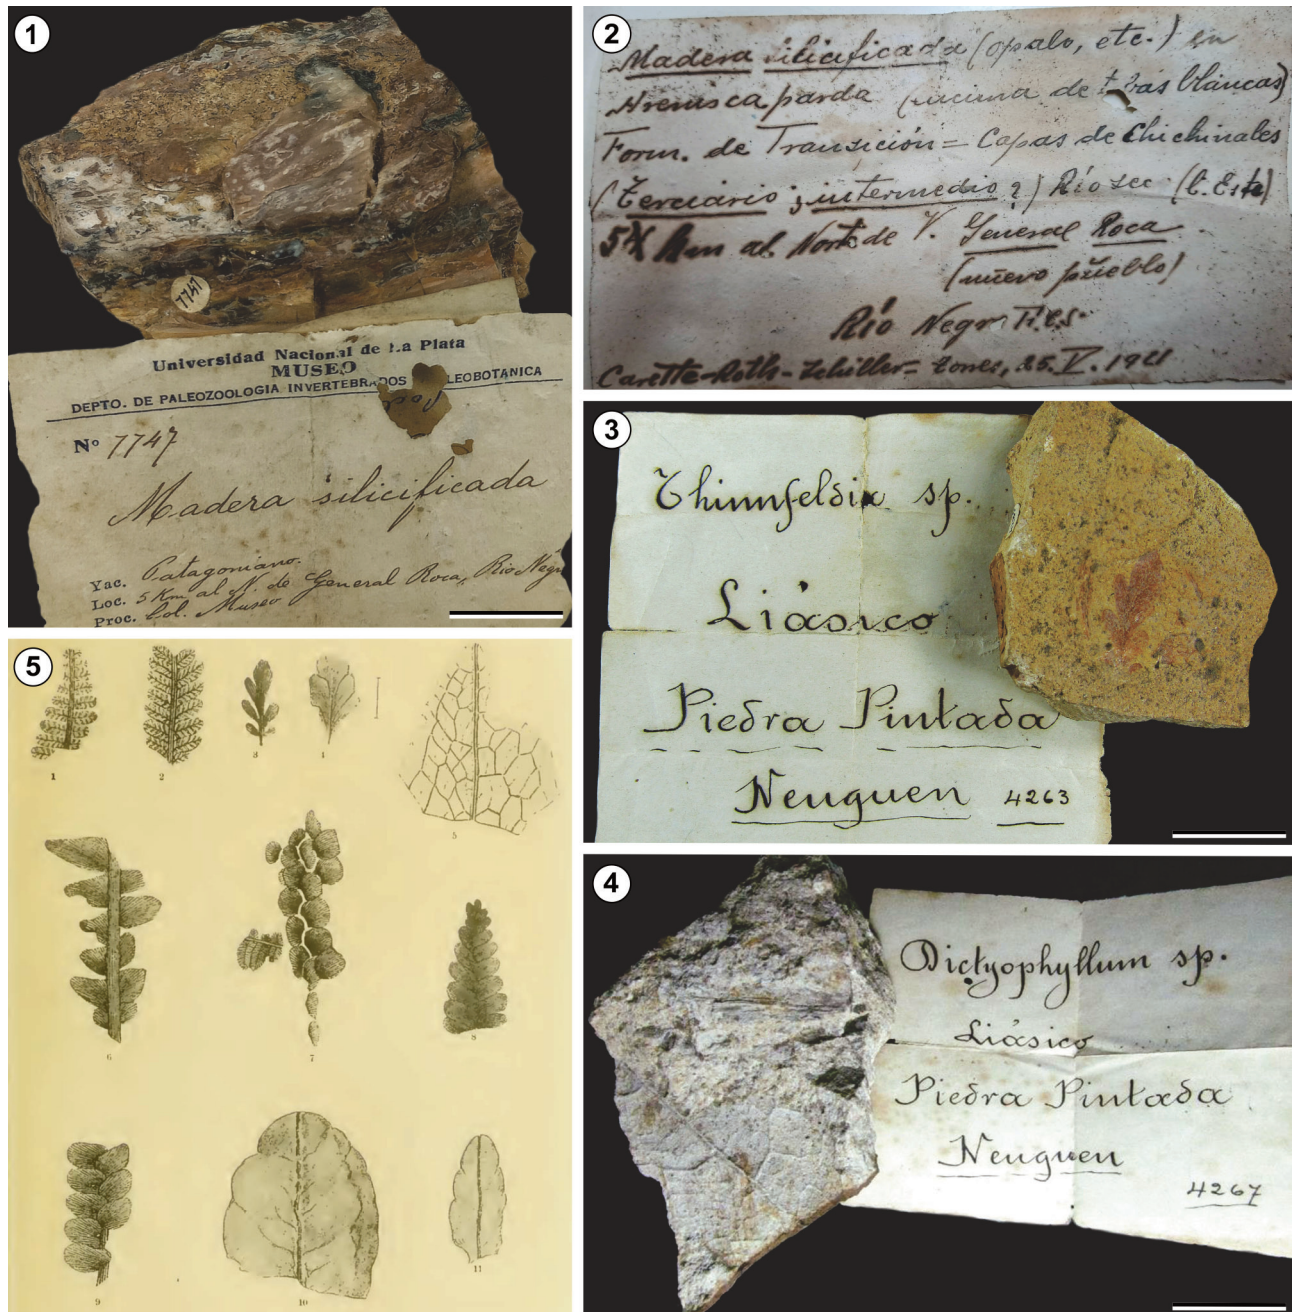 1
7747
Universidad Nacional de La Plata
MUSEO
DEPTO. DE PALEOZOOLOGIA INVERTEBRADOS LEOBOTANICA
Nº 7747
Madera silicificada
Yac. Patagoniano.
Loc. 5 Km al N. de General Roca, Rio Negro
Proc. Col. Museo
2
Madera silicificada (opalo, etc.) en
Arenisca parda (encima de tobas blancas)
Form. de Transición = Capas de Chichinales
(Terciario intermedio ?) Río sec (l. Este)
5 Km al Norte de V. General Roca
(nuevo pueblo)
Río Negro
Carette-Roth-Schiller= 25.V.1921
3
Thinnfeldia sp.
Liásico
Piedra Pintada
Neuguen 4263
4
Dictyophyllum sp.
Liásico
Piedra Pintada
Neuguen
4267
5
1 2 3 4
5
6 7 8
9 10 11